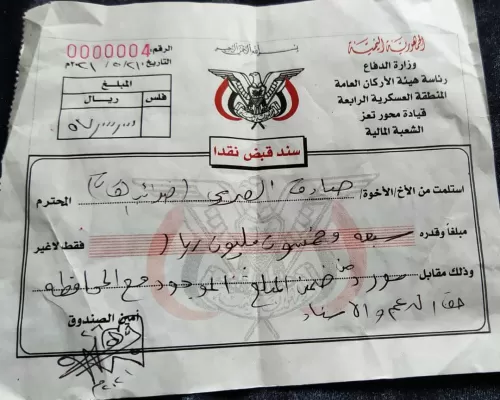 بسم الله الرحمن الرحيم
الجمهورية اليمنية
وزارة الدفاع
رئاسة هيئة الأركان العامة
المنطقة العسكرية الرابعة
قيادة محور تعز
الشعبة المالية
الرقم: 0000004
التاريخ:
المبلغ
ريال فلس
سند قبض نقدا
استلمت من الأخ/الأخوة/ صادق المحترم
مبلغاً وقدره سبعه وخمسون مليون ريال فقط لاغير
وذلك مقابل من ضمن المبلغ الموجود مع المحافظه
حق الدعم والاسناد
أمين الصندوق